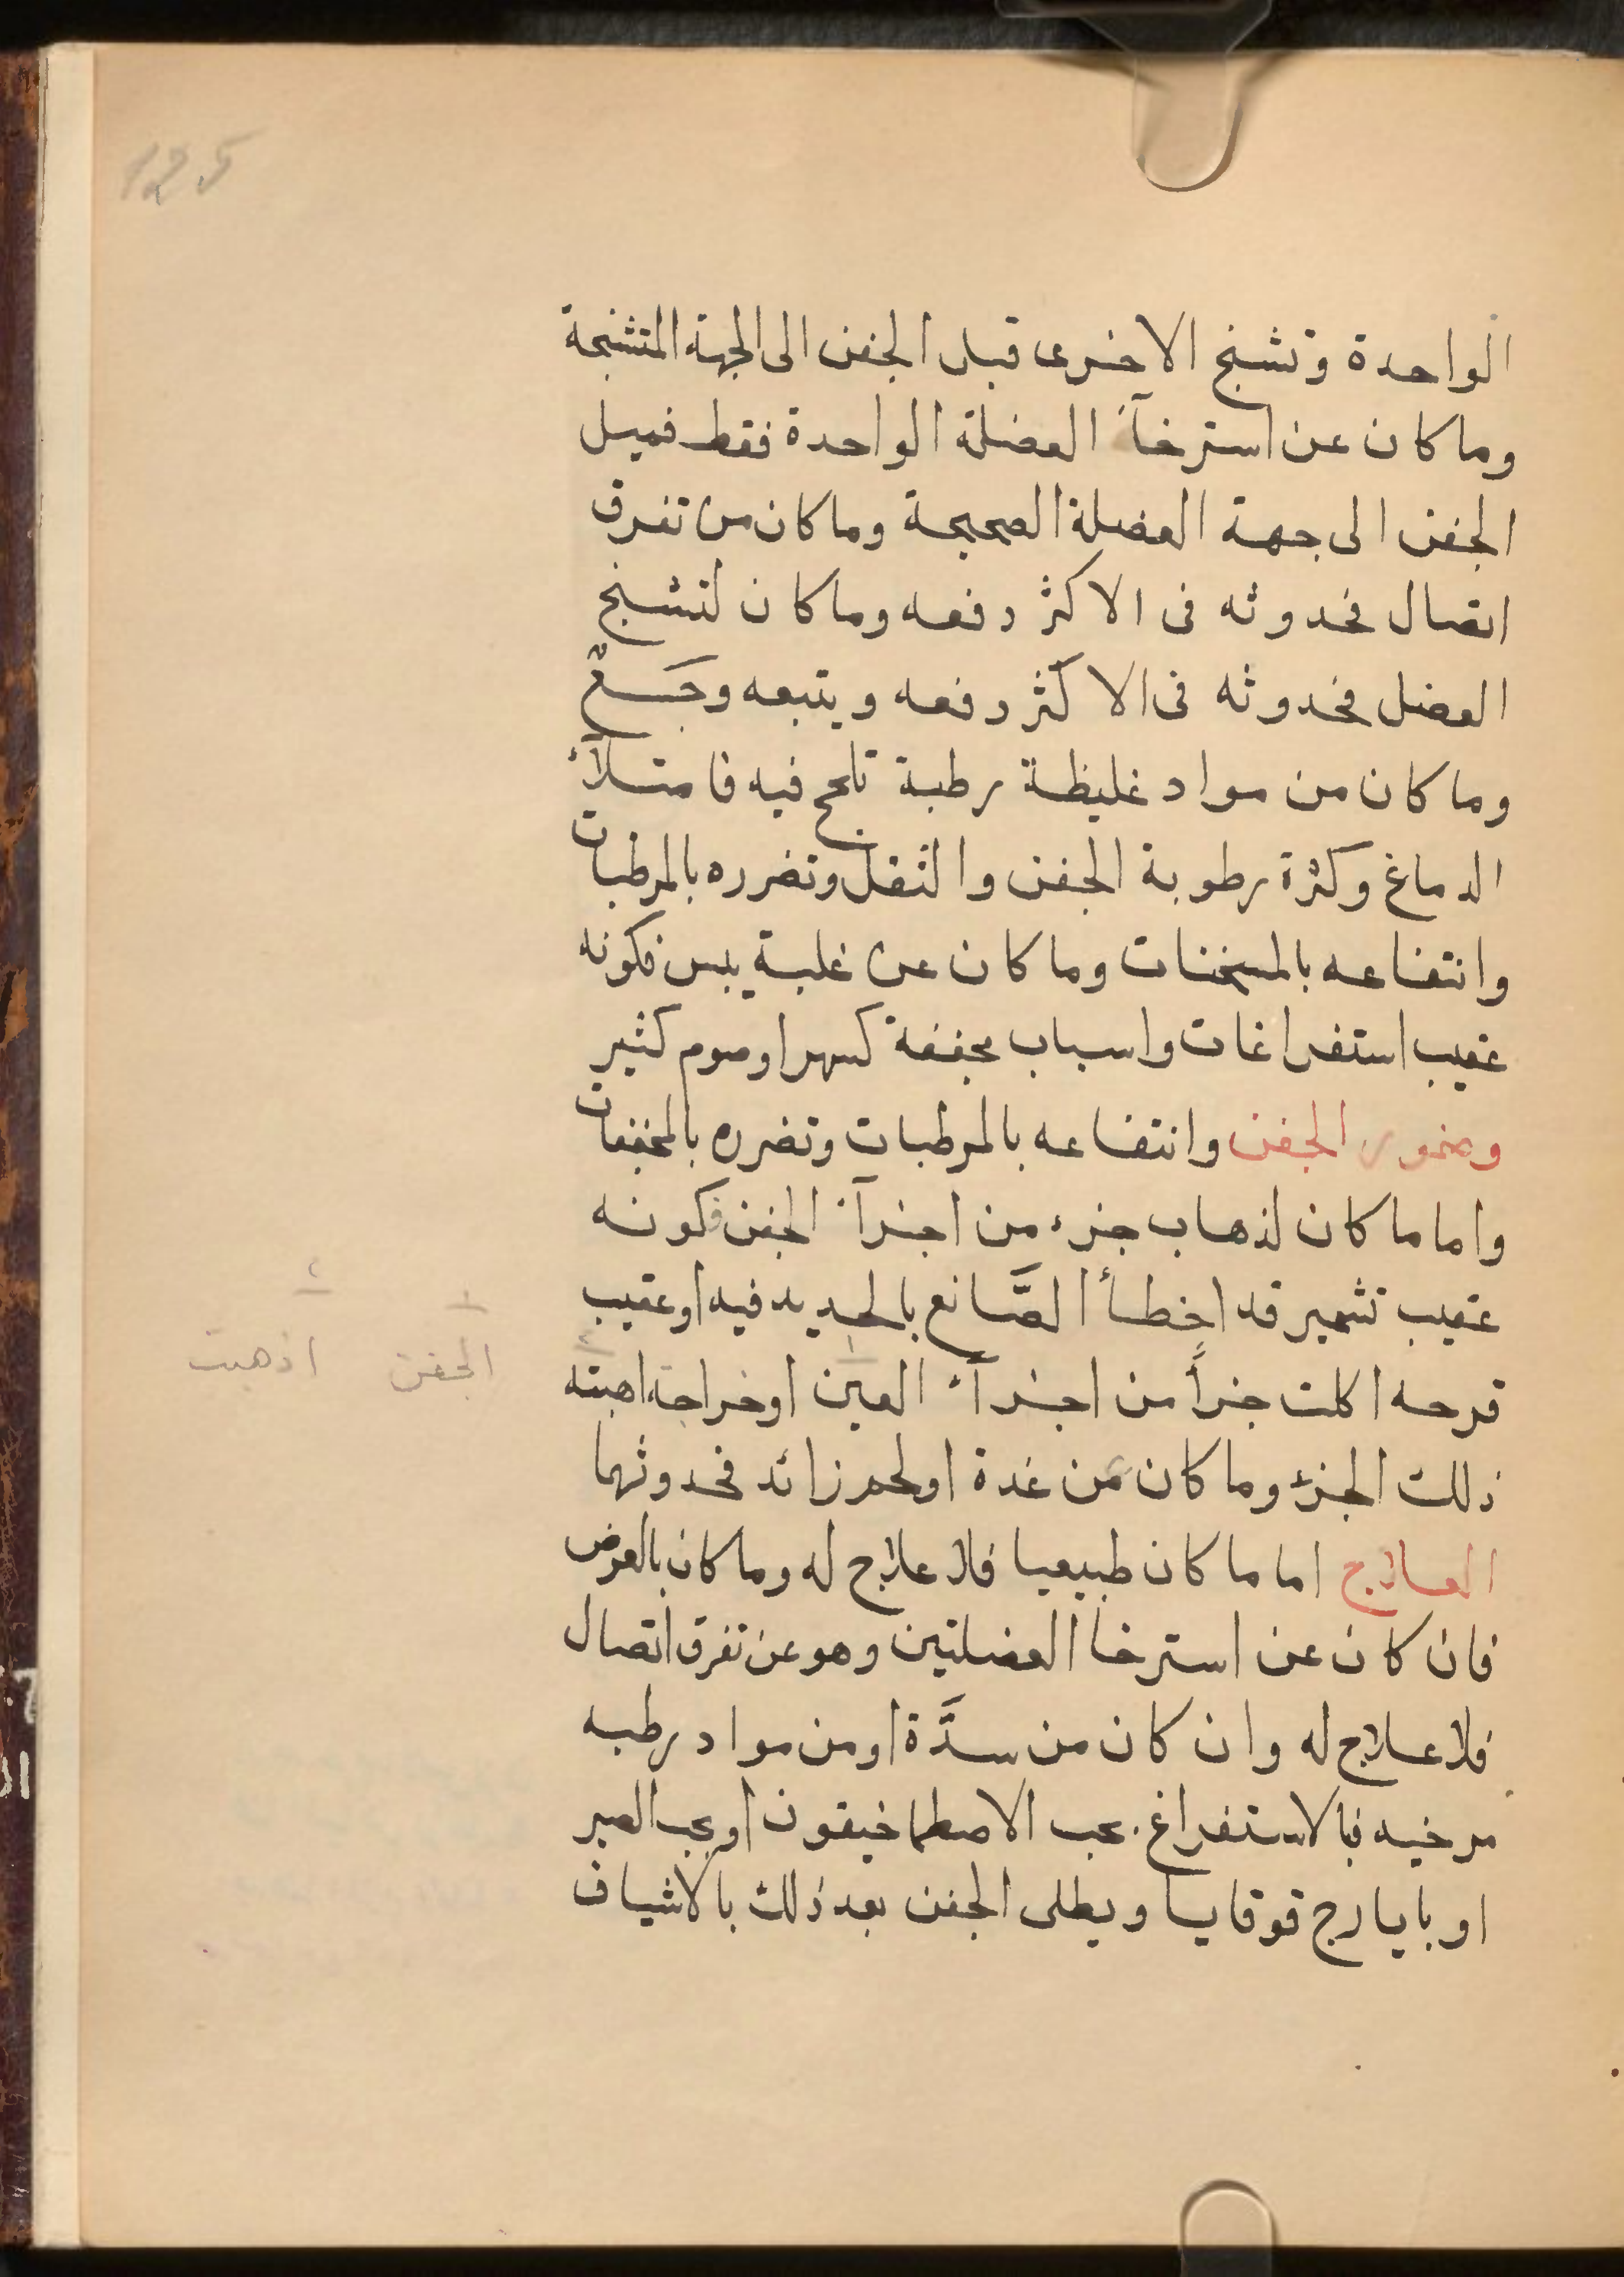 125
الواحدة وتشنج الاخرى قبل الجفن الى الجهة المتشنجة
وما كان عن استرخآء العضلة الواحدة فقط فميل
الجفن الى جهة العضلة الصحيحة وما كان من تفرق
اتصال فحدوثه فى الاكثر دفعه وما كان لتشنج
العضل فحدوثه فى الاكثر دفعه ويتبعه وجَـعٌ
وما كان من مواد غليظة رطبة تلحج فيه فامتلآء
الدماغ وكثرة رطوبة الجفن والثقل وتضرره بالمرطبات
وانتفاعه بالمسخنات وما كان عن غلبة يبس فكونه
عقيب استفراغات واسباب مجففة كسهر او صوم كثير
وضمور الجفن وانتفاعه بالمرطبات وتضرره بالمجففات
واما ما كان لذهاب جزء من اجزآء الجفن فكونه
عقيب تشمير قد اخطأ الصَّانع بالحديد فيه او عقيب
قرحه اكلت جزأً من اجزآء العين او خراجة اهبته
الجفن اذهبت
ذلك الجزء وما كان من غدة او لحم زائد فحدوثهما
العلاج اما ما كان طبيعيا فلا علاج له وما كان بالعرض
فان كان عن استرخا العضلتين وهو عن تفرق اتصال
فلا علاج له وان كان من سدَّة او من مواد رطبه
مرخيه فبالاستفراغ بحب الاصطماخيقون او بحب الصبر
او بايارج قوقايا ويطلى الجفن بعد ذلك بالاشياف